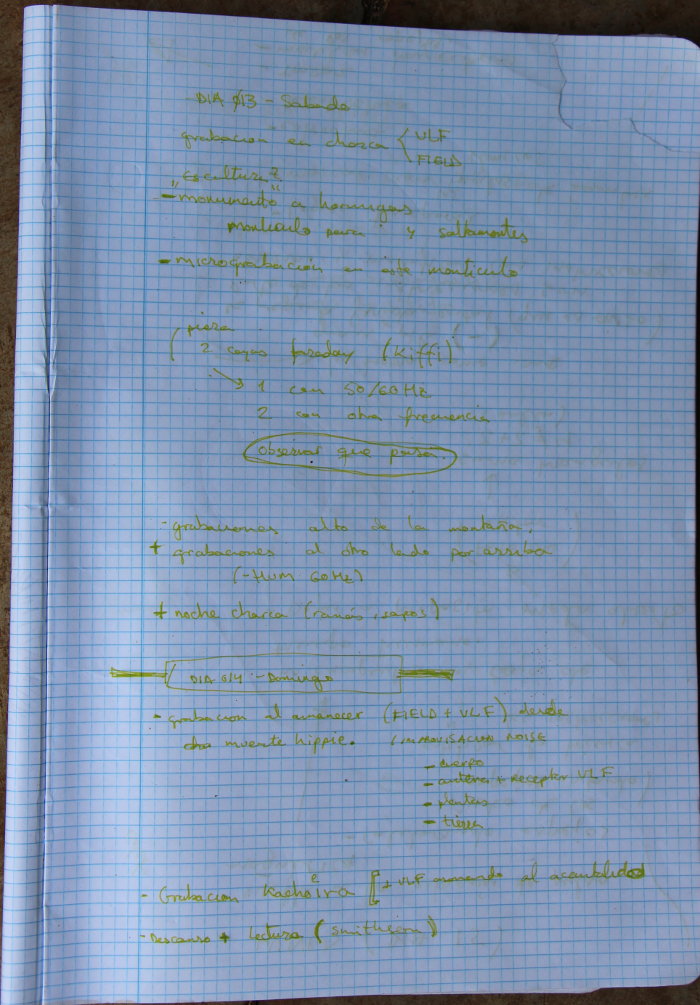 DIA Ø13 - Sabado
grabacion en charca < VLF
FIELD
"Escultura"
- monumento a hormigas
monticulo para y saltamontes
- micrograbación en este monticulo
pieza
2 cajas faraday (Kiffi)
→ 1 con 50/60 Hz
2 con otra frecuencia
observar que pasa.
- grabaciones alto de la montaña.
+ grabaciones al otro lado por arriba
(-HUM 60Hz)
+ noche charca (ranas, sapos)
DIA 014 - Domingo
- grabacion al amanecer (FIELD + VLF) desde
hippie. IMPROVISACION NOISE
- cuerpo
- antena + Receptor VLF
- plantas
- tierra
- Grabacion Kachoeira [+ VLF al acantilado
- Descanso + Lectura (Smithson)